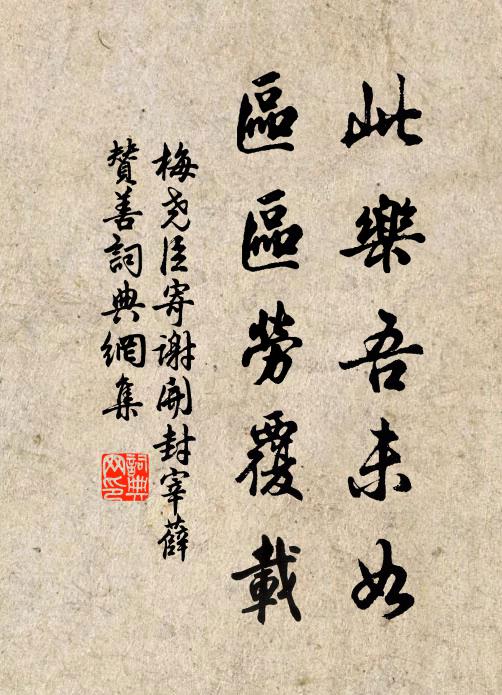 此樂吾未如
區區勞覆載
梅堯臣寄謝開封宰薛
贊善詞典網集
詞典網印